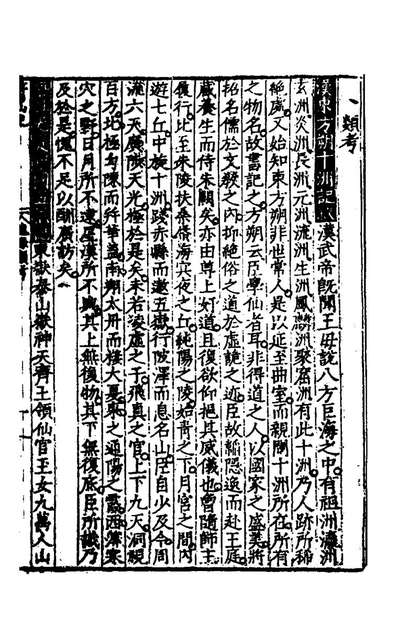 類考
漢東方朔十洲記 漢武帝既聞王母說八方巨海之中有祖洲瀛洲
玄洲炎洲長洲元洲流洲生洲鳳麟洲聚窟洲有此十洲乃人跡所稀
絕處又始知東方朔非世常人是以延至曲室而親問十洲所在所有
之物名故書記之方朔云臣學仙者耳非得道之人以國家之盛美將
招名儒於文教之內抑絕俗之道於虛詭之迹臣故韜隱逸而赴王庭
藏養生而侍朱闕矣亦由尊上好道且復欲抑挹其威儀也曾隨師主
履行比至朱陵扶桑蜃海冥夜之丘純陽之陵始青之下月宮之間內
遊七丘中旋十洲踐赤縣而遨五嶽行陂澤而息名山臣自少及今周
流六天廣陟天光極於是矣未若凌虛之子飛真之官上下九天洞視
百方北極勾陳而並華蓋南翔太丹而棲大夏東之通陽之霞西薄寒
穴之野日月所不逮星漢所不與其上無復物其下無復底臣所識乃
及於是愧不足以酬廣訪矣
東嶽泰山嶽神天齊王領仙官玉女九萬人山